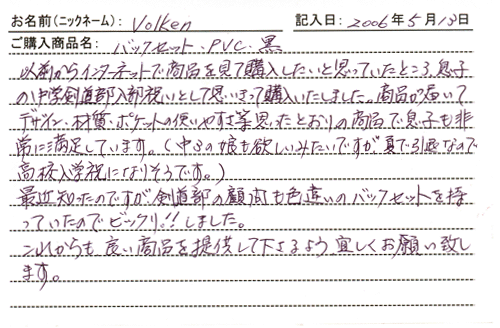 お名前(ニックネーム): Volken 記入日: 2006年5月13日
ご購入商品名: バックセット.PVC.黒
以前からインターネットで商品を見て購入したいと思っていたところ、息子
の中学剣道部入部祝いとして思いきって購入いたしました。商品が届いて
デザイン・材質・ポケットの使いやすさ等思ったとおりの商品で息子も非
常に満足しています。(中3の娘も欲しいみたいですが夏で引退なので
高校入学祝になりそうです。)
最近知ったのですが剣道部の顧問も色違いのバックセットを持
っていたのでビックリ!!しました。
これからも良い商品を提供して下さるよう宜しくお願い致し
ます。